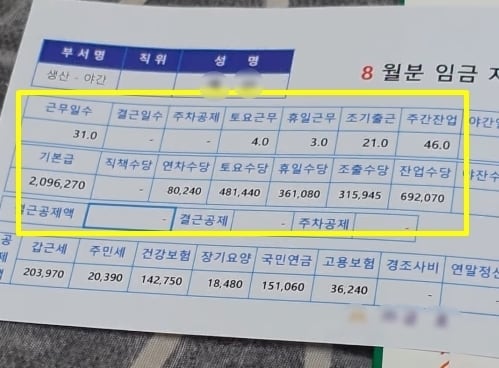 부서명 직위 성 명
생산 - 야간
8 월분 임금 지
근무일수 결근일수 주차공제 토요근무 휴일근무 조기출근 주간잔업 야간
31.0 - - 4.0 3.0 21.0 46.0
기본급 직책수당 연차수당 토요수당 휴일수당 조출수당 잔업수당 야잔수
2,096,270 - 80,240 481,440 361,080 315,945 692,070
결근공제액 - 결근공제 - 주차공제 -
공제액 갑근세 주민세 건강보험 장기요양 국민연금 고용보험 경조사비 연말정산
203,970 20,390 142,750 18,480 151,060 36,240 -